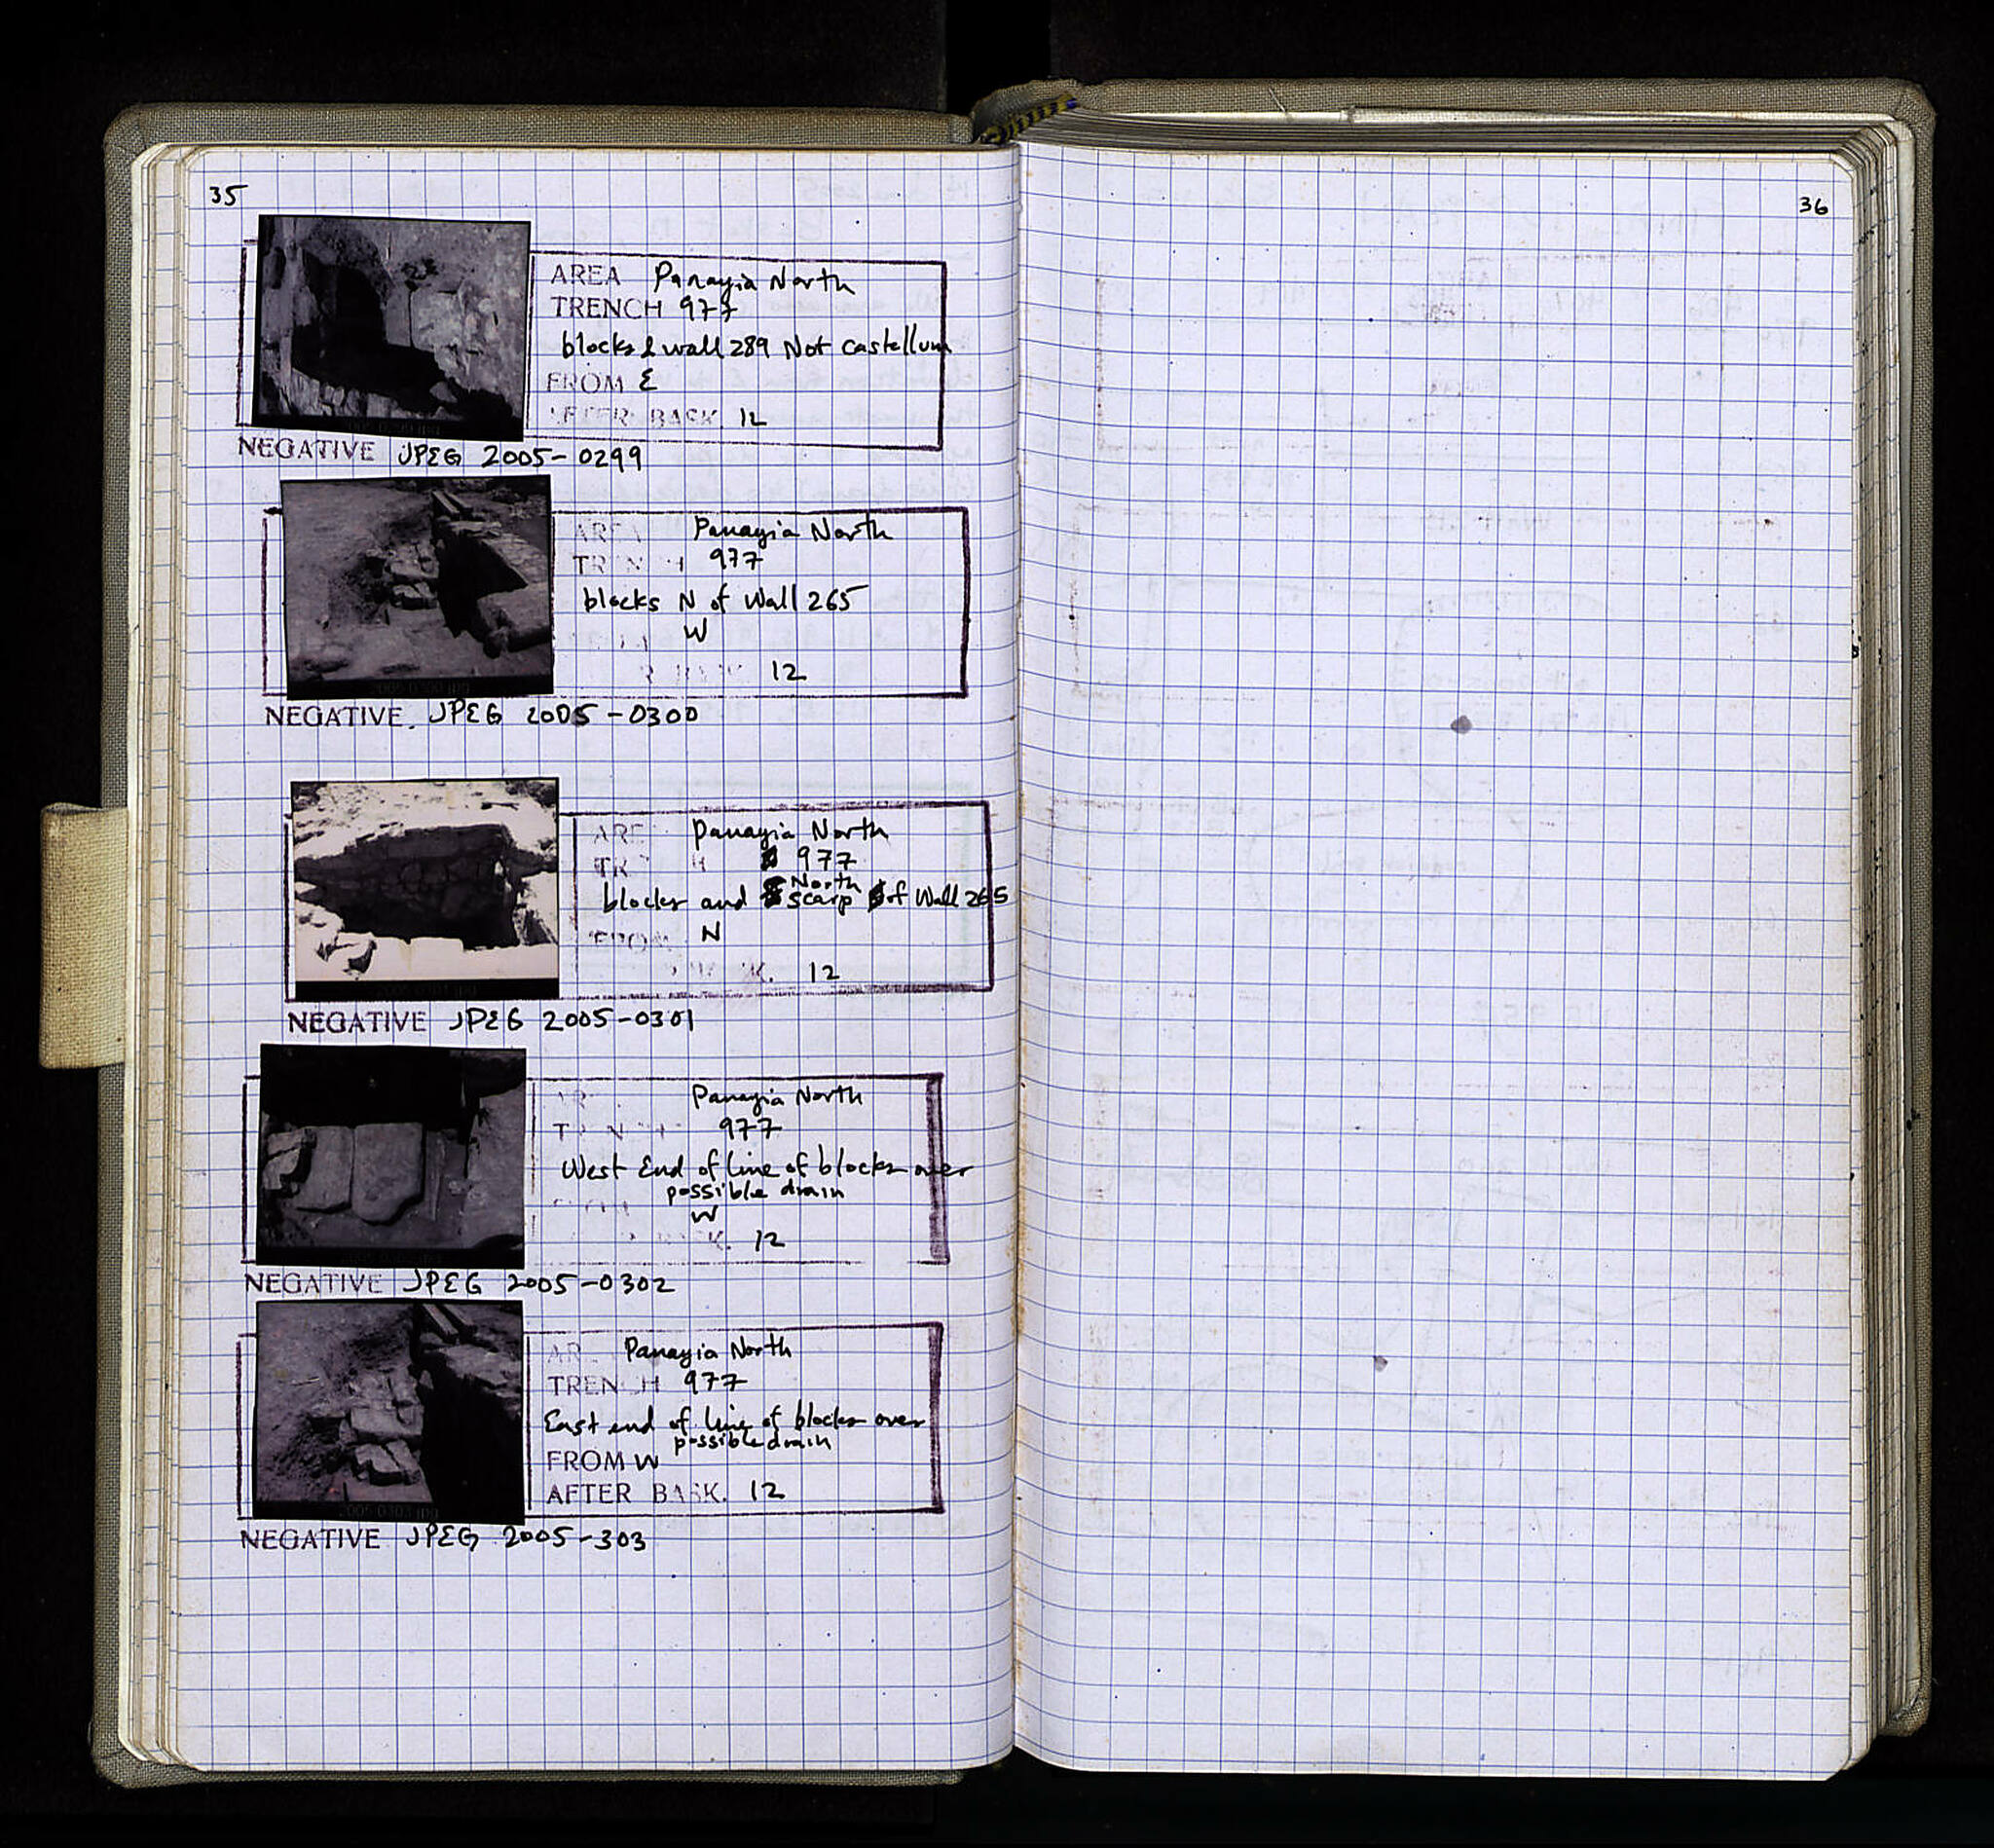 35
AREA Panayia North
TRENCH 977
blocks & wall 289 Not castellum
FROM E
AFTER BASK. 12
NEGATIVE JPEG 2005-0299
AREA Panayia North
TRENCH 977
blocks N of Wall 265
W
BASK. 12
NEGATIVE. JPEG 2005-0300
AREA Panayia North
TRENCH 977
North
blocks and scarp of Wall 265
FROM N
12
NEGATIVE JPEG 2005-0301
Panayia North
TRENCH 977
West End of line of blocks over
possible drain
W
BASK. 12
NEGATIVE JPEG 2005-0302
AREA Panayia North
TRENCH 977
East end of line of blocks over
possible drain
FROM W
AFTER BASK. 12
2005-0303.jpg
NEGATIVE JPEG 2005-303
36